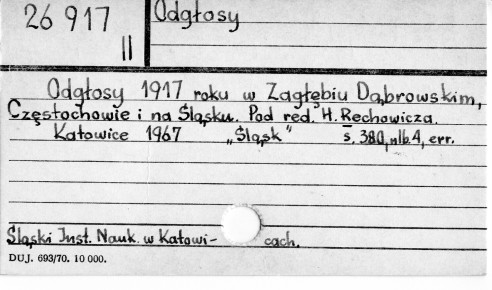 26 917
II
Odgłosy
Odgłosy 1917 roku w Zagłębiu Dąbrowskim,
Częstochowie i na Śląsku. Pod red. H. Rechowicza.
Katowice 1967 „Śląsk" s. 380, nlb. 4, err.
Śląski Inst. Nauk. w Katowi- cach.
DUJ. 693/70. 10 000.